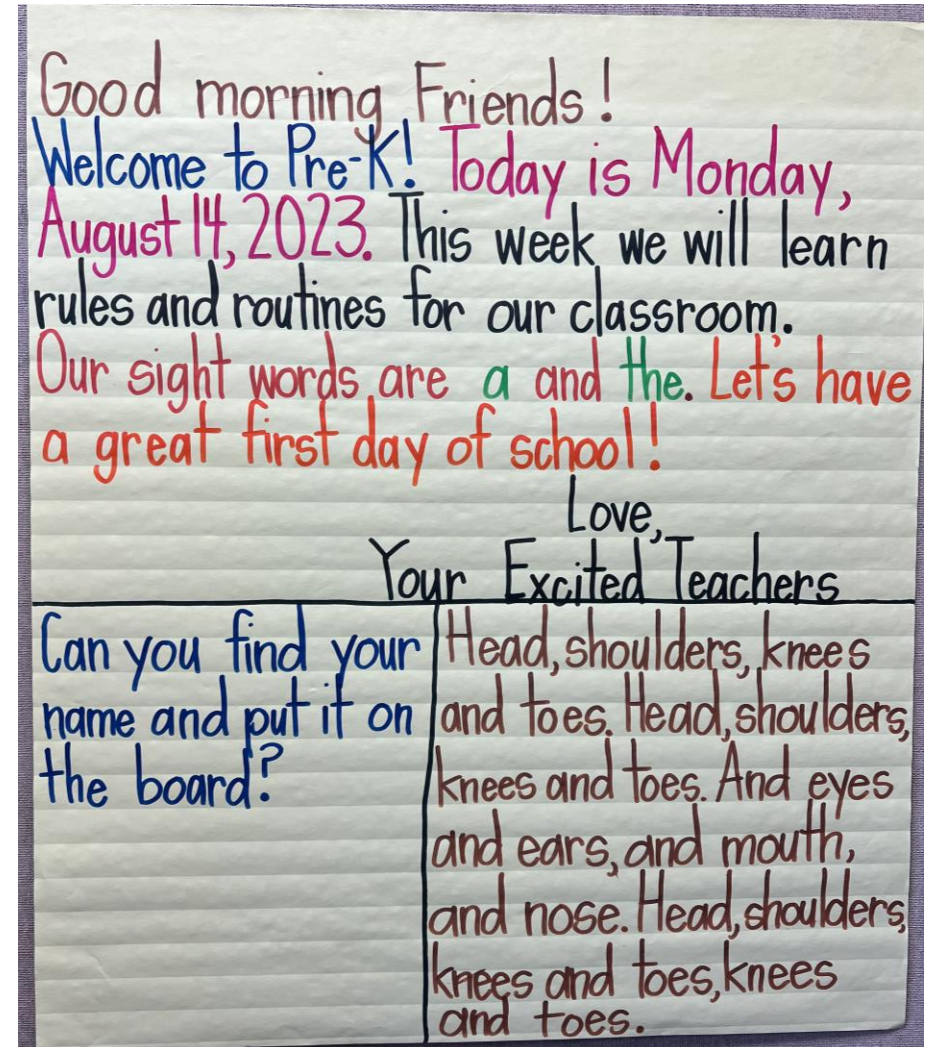 Good morning Friends!
Welcome to Pre-K! Today is Monday,
August 14, 2023. This week we will learn
rules and routines for our classroom.
Our sight words are a and the. Let's have
a great first day of school!
Love,
Your Excited Teachers
Can you find your
name and put it on
the board?
Head, shoulders, knees
and toes. Head, shoulders,
knees and toes. And eyes
and ears, and mouth,
and nose. Head, shoulders,
knees and toes, knees
and toes.